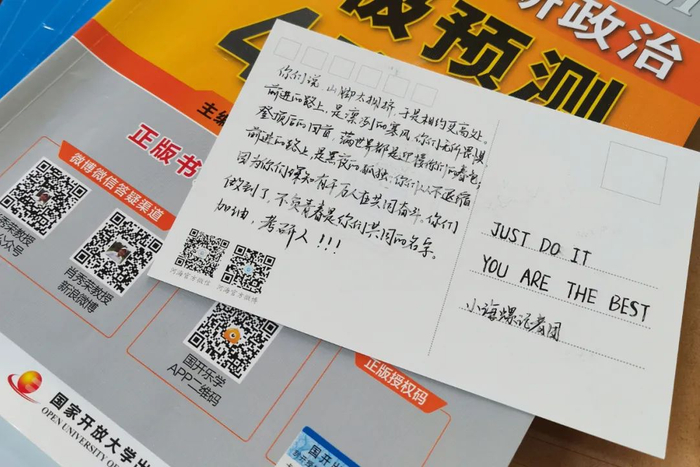 研政治
级预测
4
主编
正版书
微博微信答疑渠道
肖秀荣教授
新浪微博
国开乐学
APP二维码
正版授权码
国家开放大学出
OPEN UNIVERSITY OF
你们说，山脚太拥挤，于是相约更高处。
前进的路上，是凛冽的寒风，你们无所畏惧
登顶后的回首，满世界都是迎接你们的春色，
前进的路上，是黑夜的孤独，你们从不退缩
因为你们深知有千万人在共同奋斗。你们
做到了，不负青春是你们共同的名字。
加油，考研人！！！
河海官方微信 河海官方微博
JUST DO IT
YOU ARE THE BEST
小海螺记者团